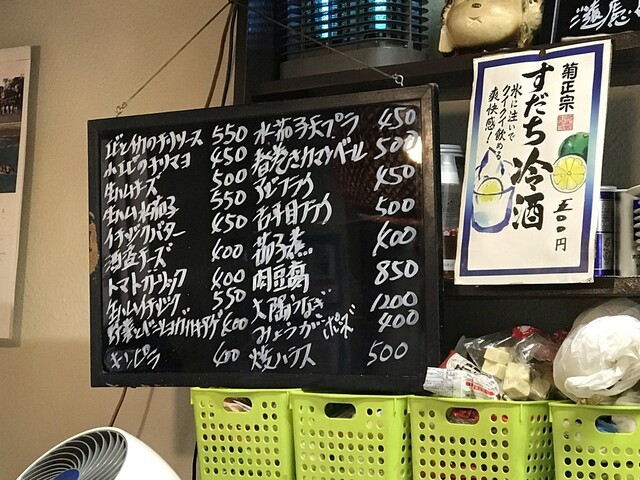 エビとイカのチリソース 550
小エビのチリマヨ 450
生ハムチーズ 500
生ハム水茄子 550
イチジクバター 450
酒盗チーズ 400
トマトガーリック 400
生ハムイチジク 550
野菜とベーコンのカキアゲ 400
キンピラ 400
水茄子天プラ 450
春巻きカマンベール 500
アジフライ 450
舌平目フライ 500
茄子煮 400
肉豆腐 850
大隅うなぎ 1200
みょうがポンズ 400
焼ハラス 500
菊正宗
すだち冷酒
氷に注いで
クイクイ飲める
爽快感!
五〇〇円